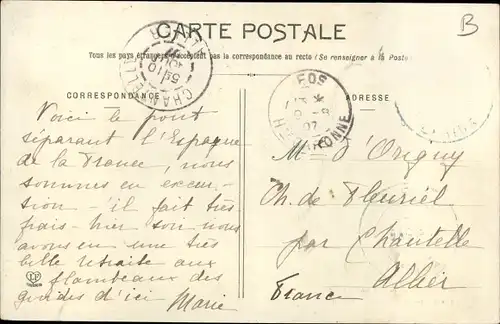 CARTE POSTALE
B
Tous les pays étrangers n'acceptent pas la correspondance au recto (Se renseigner à la Poste)
CORRESPONDANCE
ADRESSE
CHANTELLE
FOS
Hte GARONNE
Voici le pont
séparant l'Espagne
de la France, nous
sommes en excur-
sion - il fait très
frais - hier soir nous
avons eu une très
belle retraite aux
flambeaux des
guides d'ici Marie
Mme d'Origny
Ch. de Fleuriel
par Chantelle
Allier
France